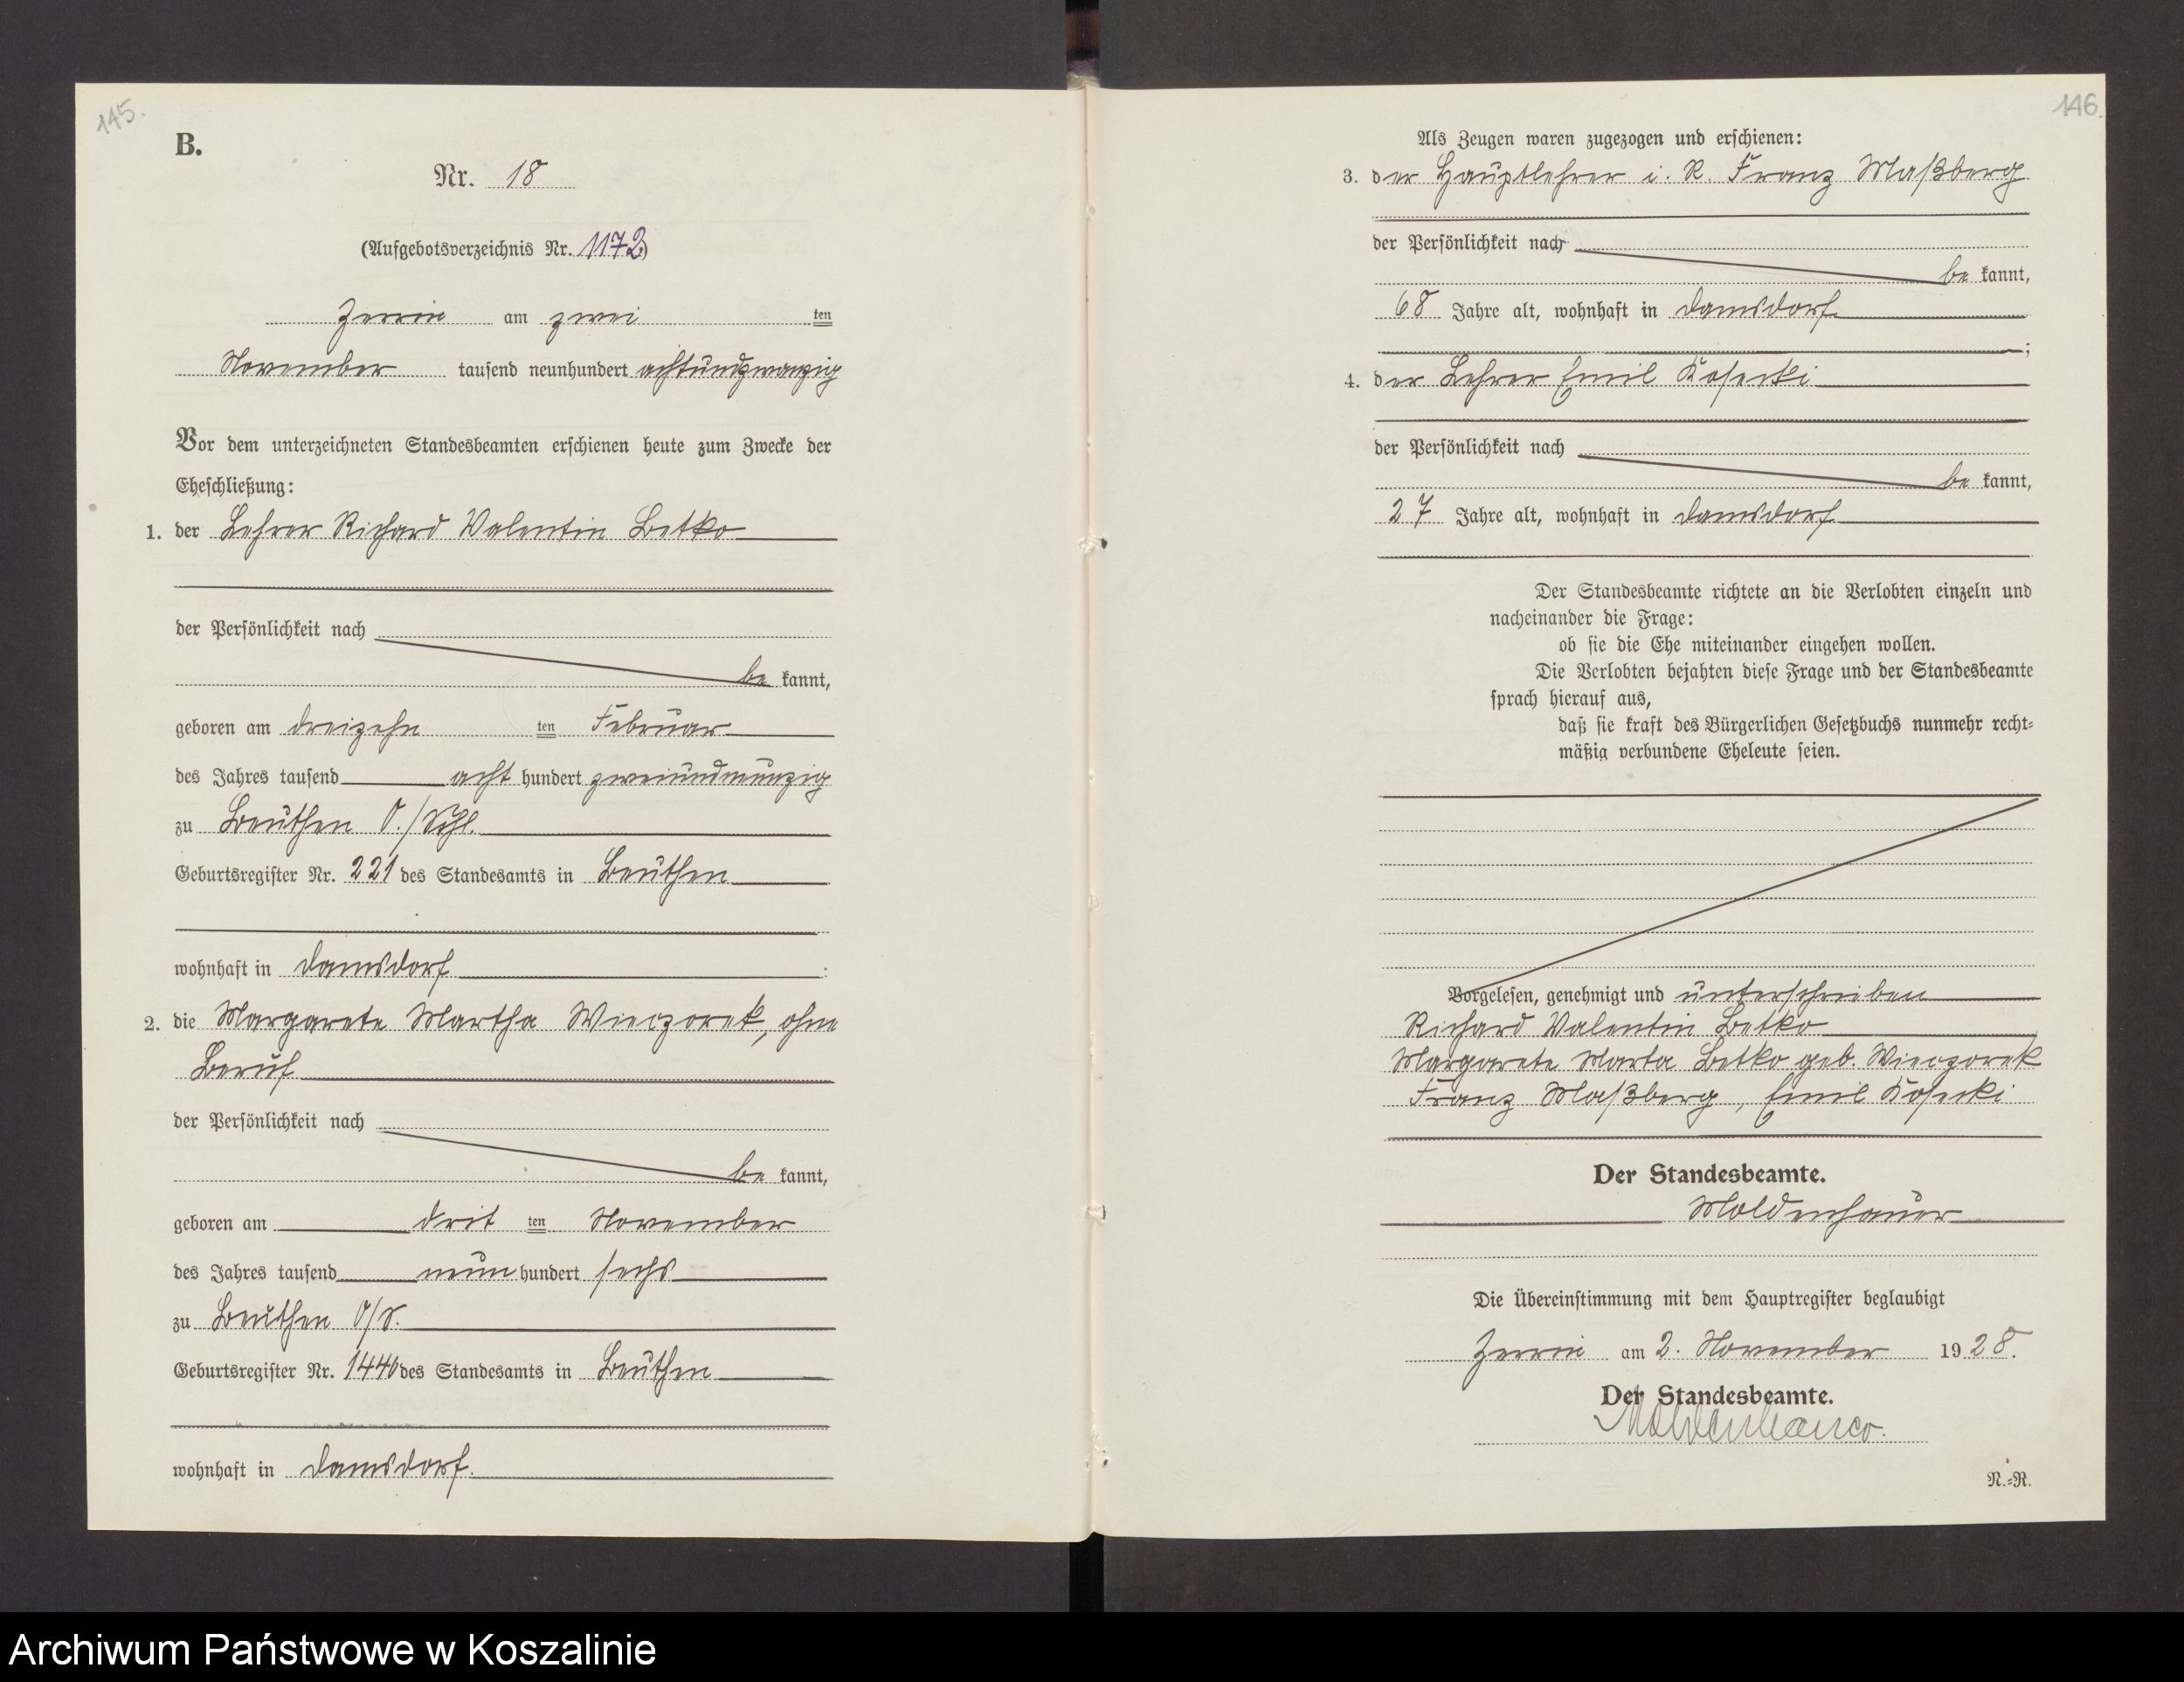 145.
B.
Nr. 18
(Aufgebotsverzeichnis Nr. 1172)
Zerrin am zwei ten
November tausend neunhundert achtundzwanzig
Vor dem unterzeichneten Standesbeamten erschienen heute zum Zwecke der
Eheschließung:
1. der Lehrer Richard Valentin Betko
der Persönlichkeit nach
be kannt,
geboren am dreizehn ten Februar
des Jahres tausend acht hundert zweiundneunzig
zu Beuthen O./Schl.
Geburtsregister Nr. 221 des Standesamts in Beuthen
wohnhaft in Damsdorf
2. die Margarete Martha Wieczorek, ohne
Beruf
der Persönlichkeit nach
be kannt,
geboren am drit ten November
des Jahres tausend neun hundert sechs
zu Beuthen O/S.
Geburtsregister Nr. 1440 des Standesamts in Beuthen
wohnhaft in Damsdorf.
146.
Als Zeugen waren zugezogen und erschienen:
3. der Hauptlehrer i. R. Franz Maßberg
der Persönlichkeit nach
be kannt,
68 Jahre alt, wohnhaft in Damsdorf
;
4. der Lehrer Emil Kosecki
der Persönlichkeit nach
be kannt,
27 Jahre alt, wohnhaft in Damsdorf
Der Standesbeamte richtete an die Verlobten einzeln und
nacheinander die Frage:
ob sie die Ehe miteinander eingehen wollen.
Die Verlobten bejahten diese Frage und der Standesbeamte
sprach hierauf aus,
daß sie kraft des Bürgerlichen Gesetzbuchs nunmehr recht-
mäßig verbundene Eheleute seien.
Vorgelesen, genehmigt und unterschrieben
Richard Valentin Betko
Margarete Marta Betko geb. Wieczorek
Franz Maßberg, Emil Kosecki
Der Standesbeamte.
Moldenhauer
Die Übereinstimmung mit dem Hauptregister beglaubigt
Zerrin am 2. November 1928.
Der Standesbeamte.
Moldenhauer.
N.-R.
Archiwum Państwowe w Koszalinie